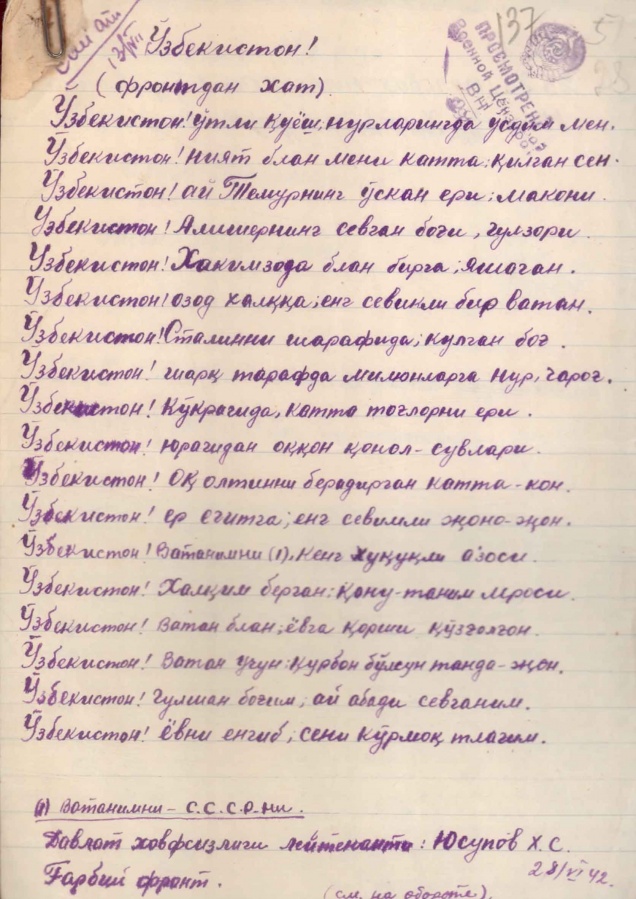 137
ПРОСМОТРЕНО
Военной Цензурой
Ўзбекистон!
(фронтдан хат)
Ўзбекистон! ўтли қуёш, нурларингда ўсдим мен.
Ўзбекистон! ният блан мени катта; қилган сен.
Ўзбекистон! ай Темурнинг ўскан ери; макони.
Ўзбекистон! Алишернинг севган боғи, гулзори.
Ўзбекистон! Хакимзода блан бирга; яшоған.
Ўзбекистон! озод халққа; енг севикли бир ватан.
Ўзбекистон! Сталинни шарафида; кулган боғ.
Ўзбекистон! шарқ тарафда милионларга нур, чароғ.
Ўзбекистон! Кўкрагида, катта тоғлорни ери.
Ўзбекистон! юрагидан оққон қонол-сувлари.
Ўзбекистон! Оқ олтинни берадирган катта-кон.
Ўзбекистон! ер егитга; енг севимли жоно-жон.
Ўзбекистон! Ватанимни (1), кенг хуқуқли аъзоси.
Ўзбекистон! Халқим берган: қону-таним мероси.
Ўзбекистон! Ватан блан; ёвга қорши қўзғолғон.
Ўзбекистон! Ватан учун: қурбон бўлсун танда-жон.
Ўзбекистон! Гулшан боғим; ай абади севганим.
Ўзбекистон! ёвни енгиб; сени кўрмоқ тлагим.
(1) Ватанимни - С.С.С.Р-ни.
Давлат ховфсизлиги лейтенанти: Юсупов Х.С.
Ғарбий фронт.
28/VI 42.
(см. на обороте).